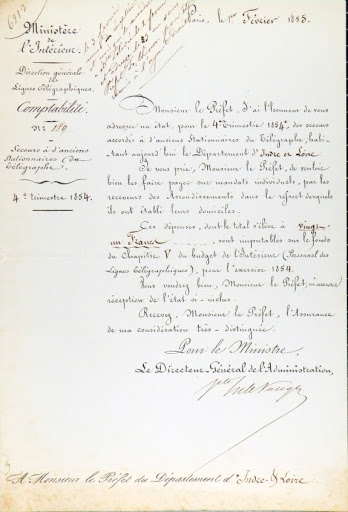 Paris, le 1er Février 1855.
Ministère
de
l'Intérieur.
Direction générale
des
Lignes Télégraphiques.
Comptabilité.
Secours à d'anciens
Stationnaires du
Télégraphe.
4e trimestre 1854.
Monsieur le Préfet, J'ai l'honneur de vous
adresser un état, pour le 4e Trimestre 1854, des secours
accordés à d'anciens Stationnaires du Télégraphe, habi-
tant aujourd'hui le Département d'Indre et Loire
Je vous prie, Monsieur le Préfet, de vouloir
bien les faire payer sur mandats individuels, par les
receveurs des Arrondissements dans le ressort desquels
ils ont établi leurs domiciles.
Ces dépenses, dont le total s'élève à vingt
un Francs, sont imputables sur le fonds
du Chapitre V du budget de l'Intérieur (Personnel des
Lignes Télégraphiques), pour l'exercice 1854.
Vous voudrez bien, Monsieur le Préfet, m'accuser
réception de l'état ci-inclus.
Recevez, Monsieur le Préfet, l'Assurance
de ma considération très-distinguée.
Pour le Ministre,
Le Directeur-Général de l'Administration,
A Monsieur le Préfet du Département d'Indre-&-Loire